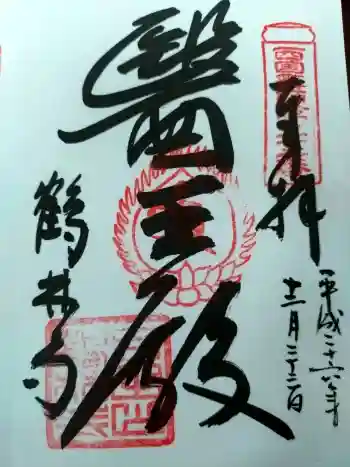 奉拝
平成二十六年
十二月二十二日
醫王殿
鶴林寺